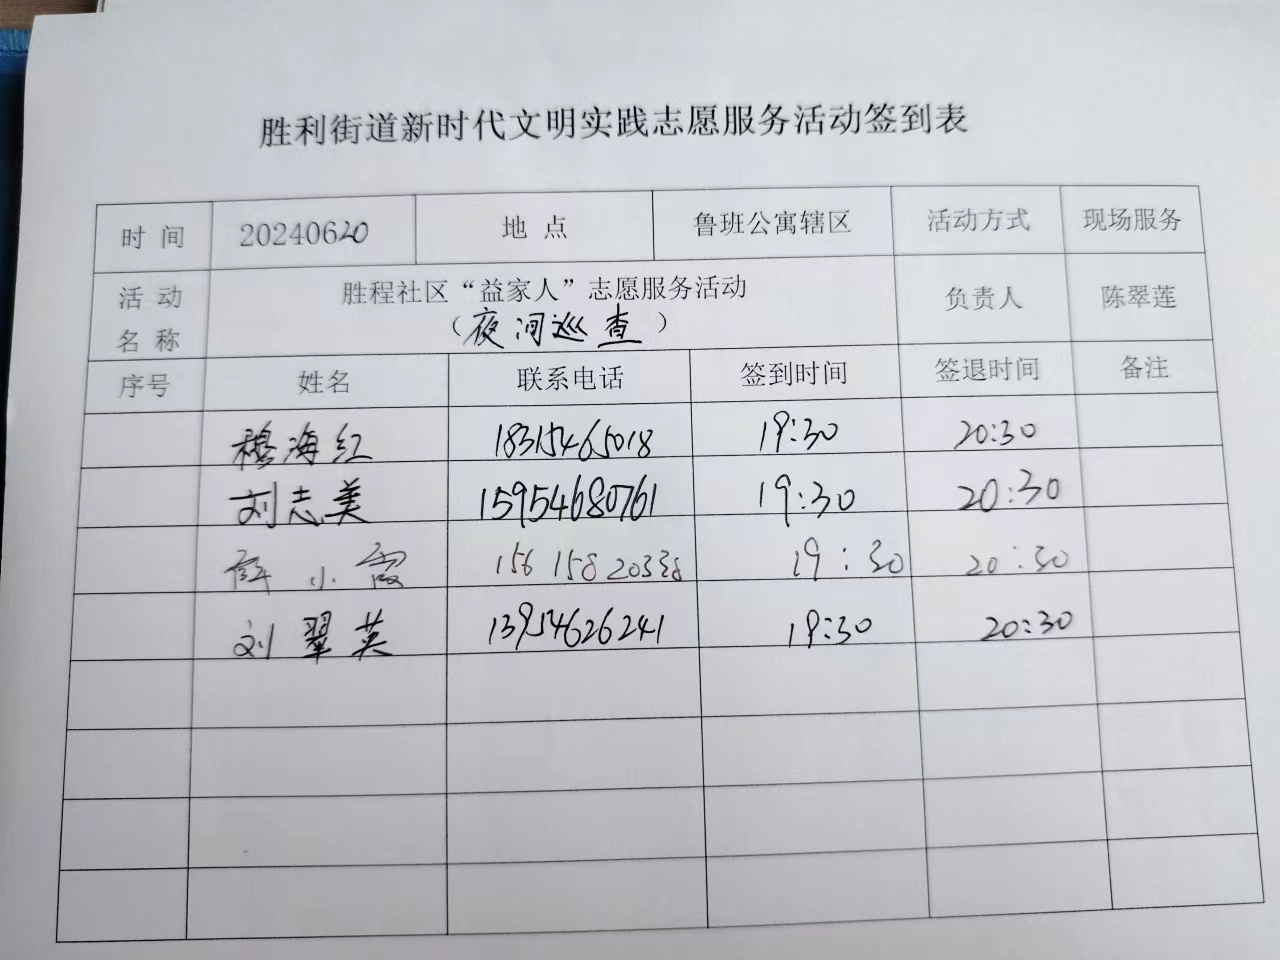 胜利街道新时代文明实践志愿服务活动签到表
时 间 20240620 地 点 鲁班公寓辖区 活动方式 现场服务
活 动 名 称 胜程社区“益家人”志愿服务活动 负责人 陈翠莲
（夜间巡查）
序号 姓名 联系电话 签到时间 签退时间 备注
穆海红 18315465018 19:30 20:30
刘志美 15954680761 19:30 20:30
薛小霞 156 158 19:30 20:30
刘翠英 13954626241 19:30 20:30